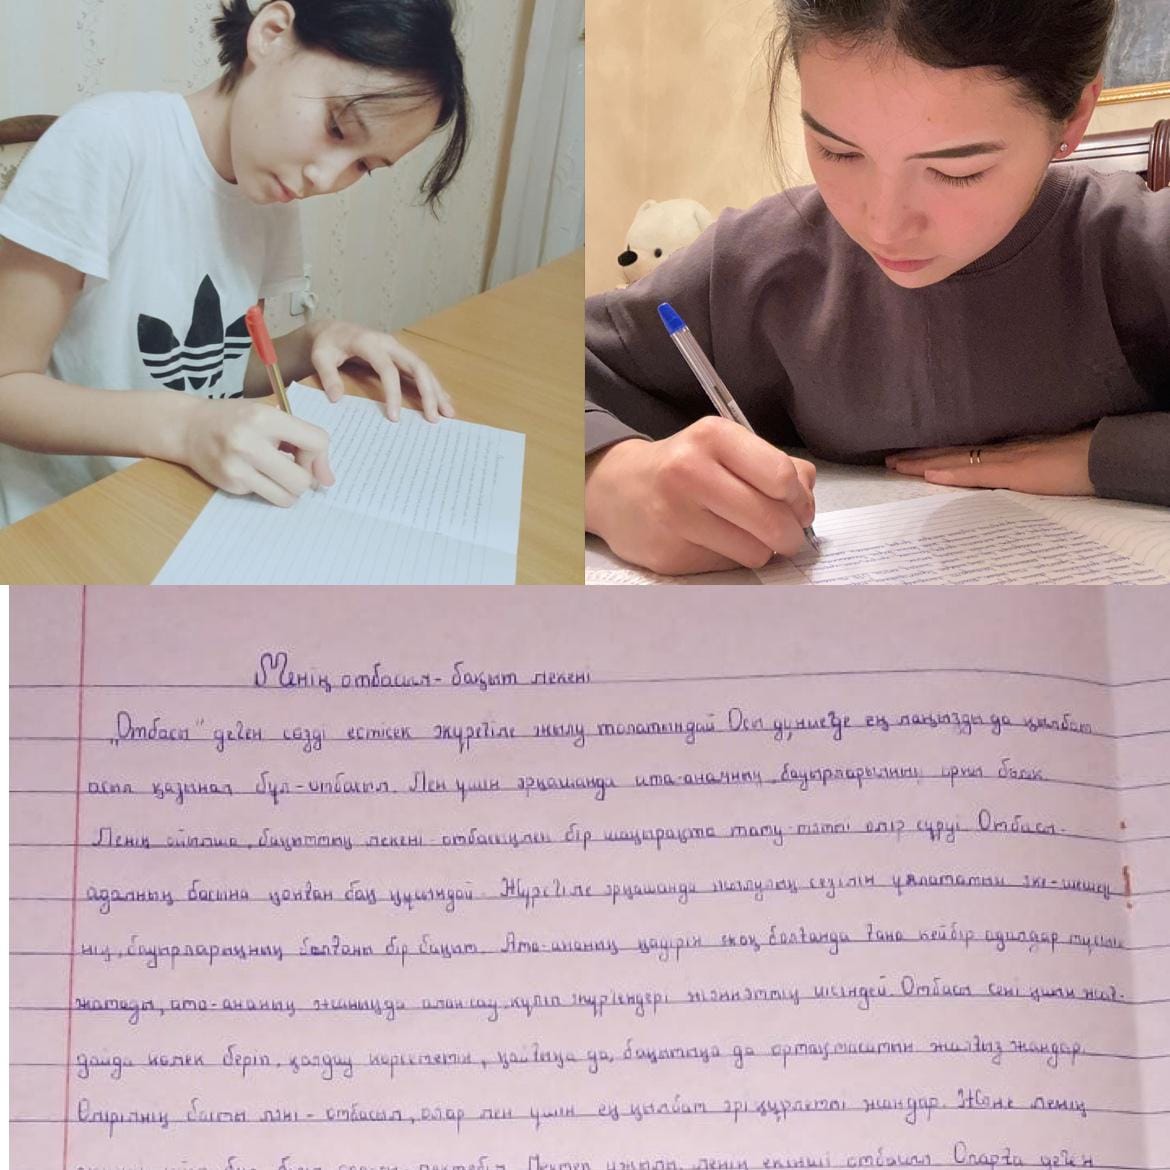 Менің отбасым - бақыт мекені
„Отбасы" деген сөзді естісек жүрегіме жылу толатындай Осы дүниеде ең маңызды да қымбат
асыл қазынам бұл - отбасым. Мен үшін әрқашанда ата-анамның, бауырларымның орны бөлек
Менің ойымша, бақыттың мекені - отбасыңмен бір шаңырақта тату-тәтті өмір сүруі Отбасы-
адамның басына қонған бақ құсындай. Жүрегіме әрқашанда жылулық сезімін ұялататын әке-шешең
нің, бауырларыңның болғаны бір бақыт. Ата-ананың қадірін жоқ болғанда ғана кейбір адамдар түсініп
жатады, ата-ананың жаныңда аман сау күліп жүргендері жәннаттың исіндей. Отбасы сені үшін жағ-
дайда көмек беріп, қолдау көрсететін, қайғыңа да, бақытыңа да ортақтасатын жалғыз жандар.
Өмірімнің басты мәні - отбасым, олар мен үшін ең қымбат әрі құрметті жандар. Және менің
бұл білім мектебім Мектеп ұжымы менің екінші отбасым Оларға деген